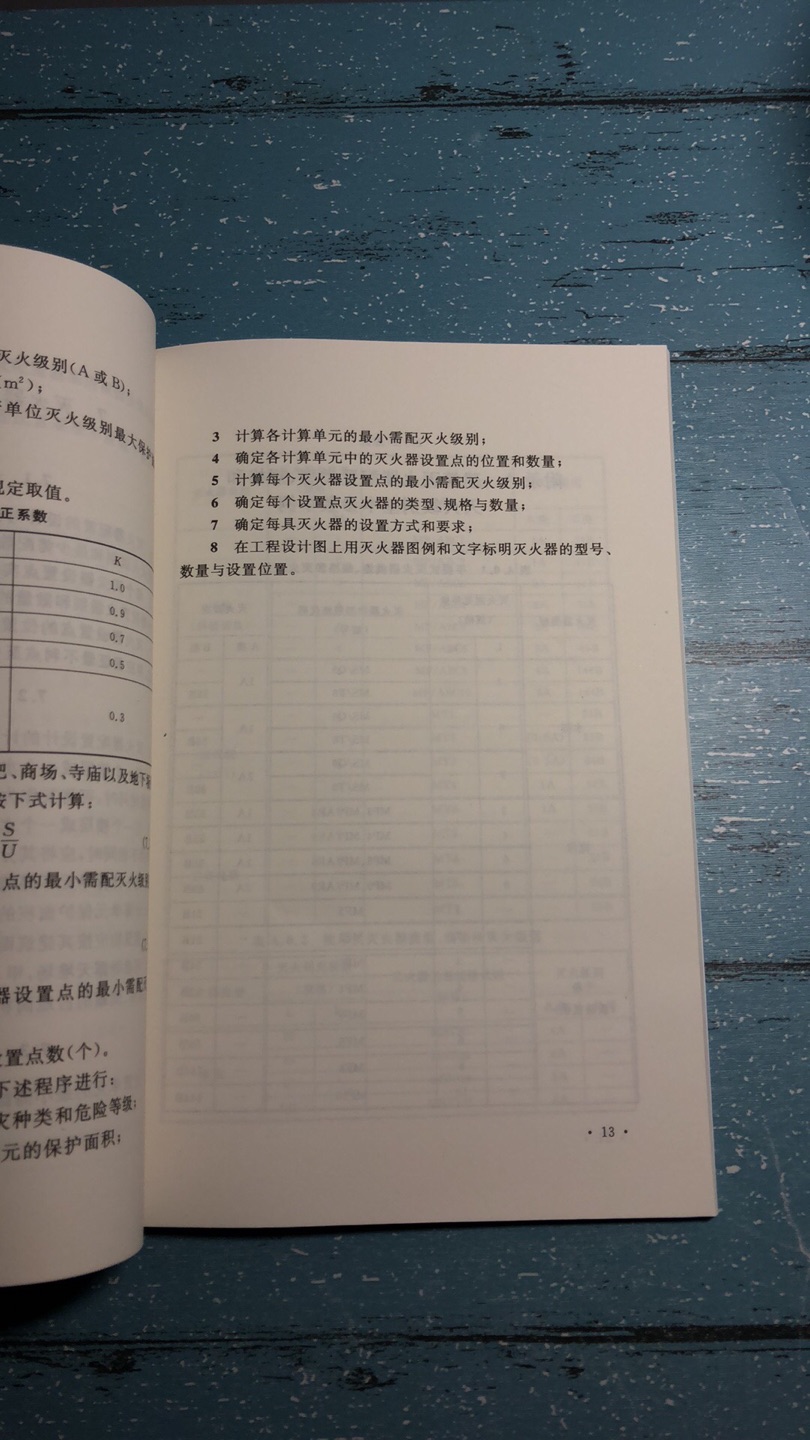 灭火级别(A 或 B);
(m²);
单位灭火级别最大保护
规定取值。
正系数
K
1.0
0.9
0.7
0.5
0.3
、商场、寺庙以及地下
按下式计算:
S
U
点的最小需配灭火级
器设置点的最小需配
设置点数(个)。
下述程序进行:
灾种类和危险等级;
元的保护面积;
3 计算各计算单元的最小需配灭火级别;
4 确定各计算单元中的灭火器设置点的位置和数量;
5 计算每个灭火器设置点的最小需配灭火级别;
6 确定每个设置点灭火器的类型、规格与数量;
7 确定每具灭火器的设置方式和要求;
8 在工程设计图上用灭火器图例和文字标明灭火器的型号、
数量与设置位置。
• 13 •